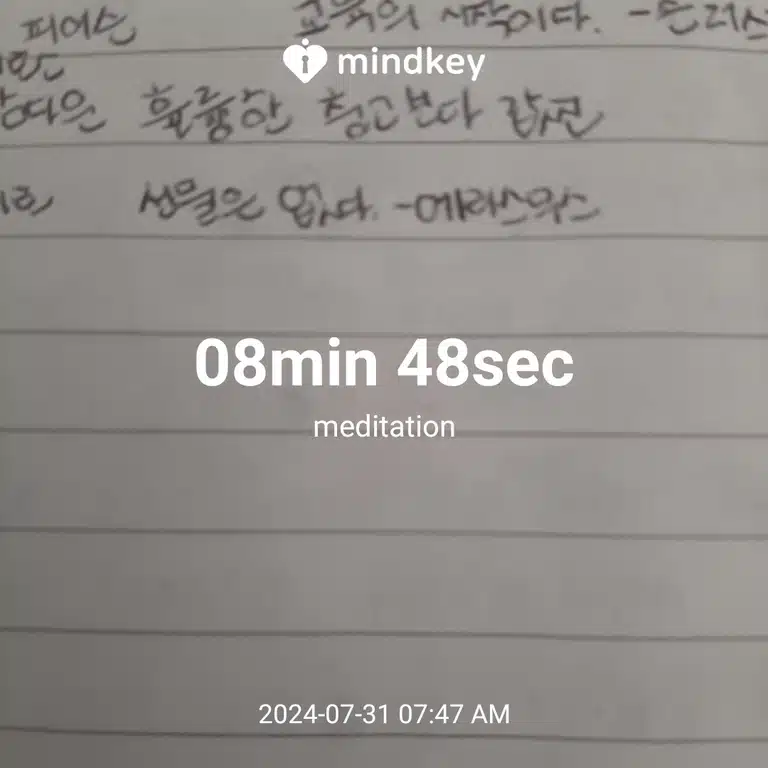 피어슨 교육의 시작이다. -
mindkey
훌륭한 충고보다 값진
선물은 없다. -에라스무스
08min 48sec
meditation
2024-07-31 07:47 AM